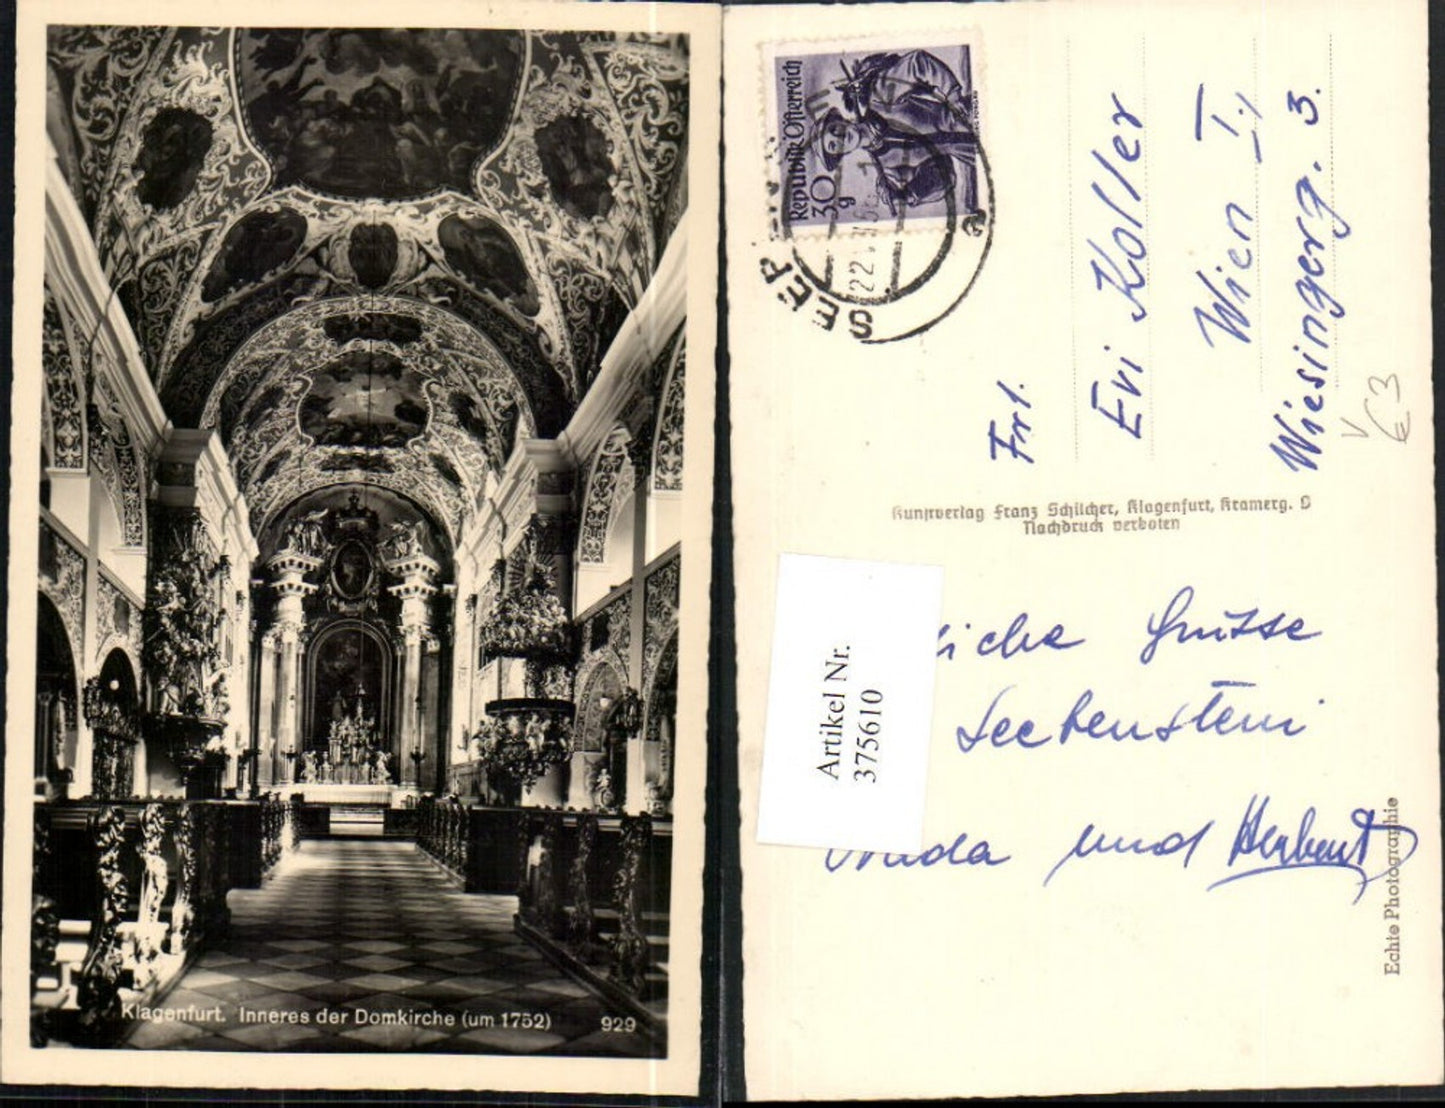 Klagenfurt. Inneres der Domkirche (um 1752) 929
Republik Österreich
30 g
22
Frl.
Evi Koller
Wien I.,
Wiesingerg. 3.
€3
Kunstverlag Franz Schilcher, Klagenfurt, Kramerg. 9
Nachdruck verboten
Artikel Nr.
375610
liche Grüsse
und Herbert
Echte Photographie